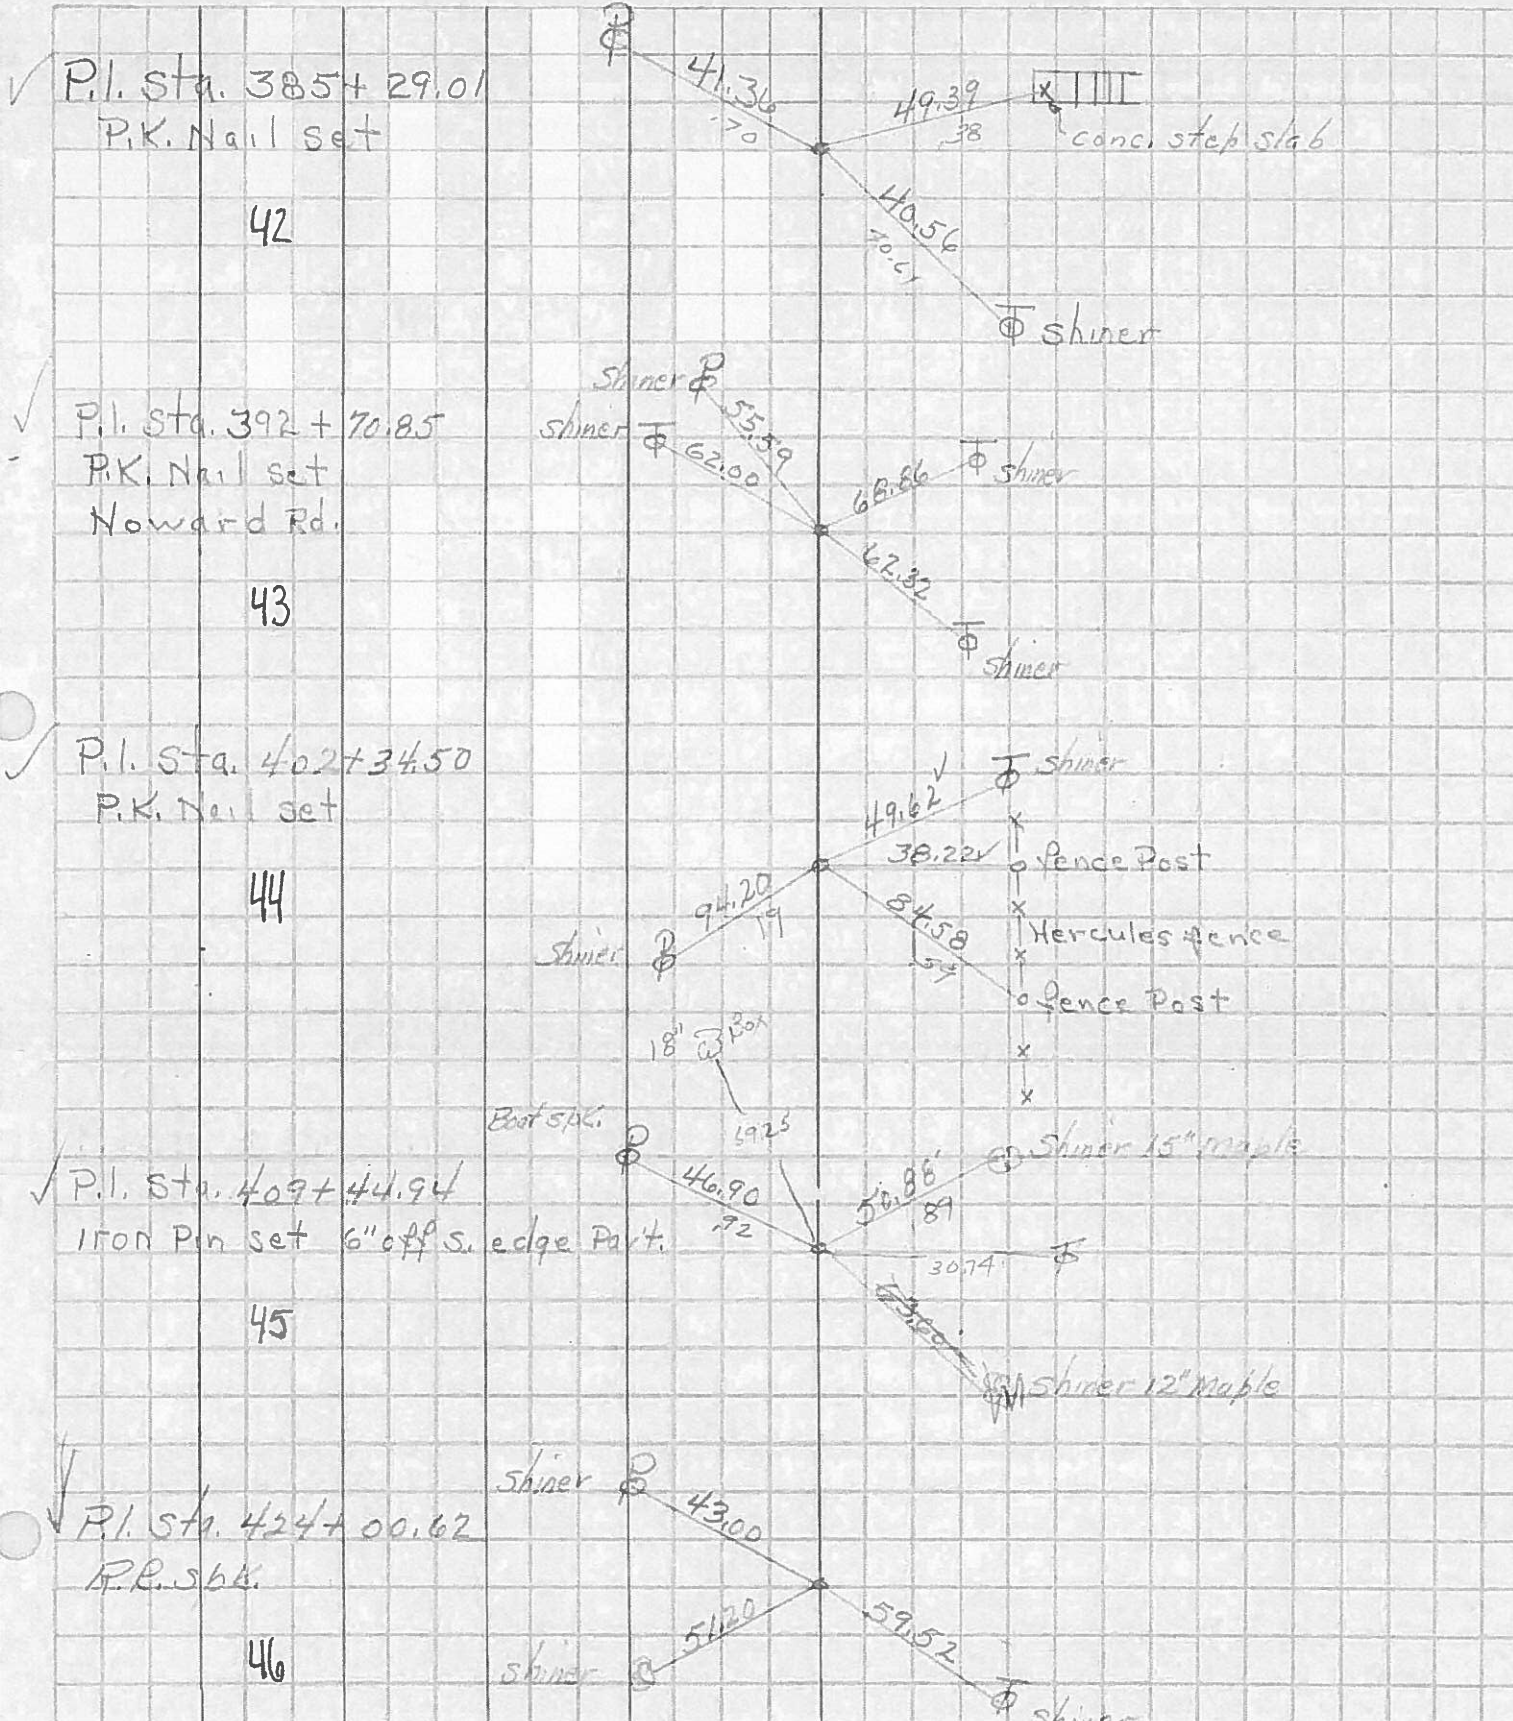 P.I. Sta. 385+29.01
P.K. Nail set
42
P
41.36
.70
49.39
.38
conc. step slab
40.56
T shiner
P.I. Sta. 392+70.85
P.K. Nail set
Howard Rd.
43
Shiner P
55.59
shiner T
62.00
68.86
T shiner
62.32
T shiner
P.I. Sta. 402+34.50
P.K. Nail set
44
T shiner
49.62
38.22
fence Post
94.20
.19
84.58
Hercules fence
Shiner P
fence Post
18" Box
Boat spk.
P
P.I. Sta. 409+44.94
Iron Pin set 6" off s. edge Pav't.
45
46.90
.92
Shiner 15" maple
.88'
89
30.74
T
Shiner 12" Maple
P.I. Sta. 424+00.62
R.R. spk.
46
Shiner P
43.00
51.20
shiner
59.52
T shiner